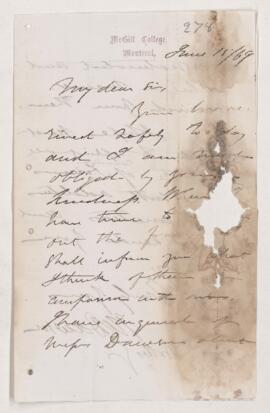 278
McGill College,
Montreal,
June 18/69
My dear Sir
Your box
rived safely to day
and I am much
obliged by your
kindness. When I
have time to
out the
shall inform you what
I think of them in
comparison with ours.
I have enquired of
Messrs Dawson about